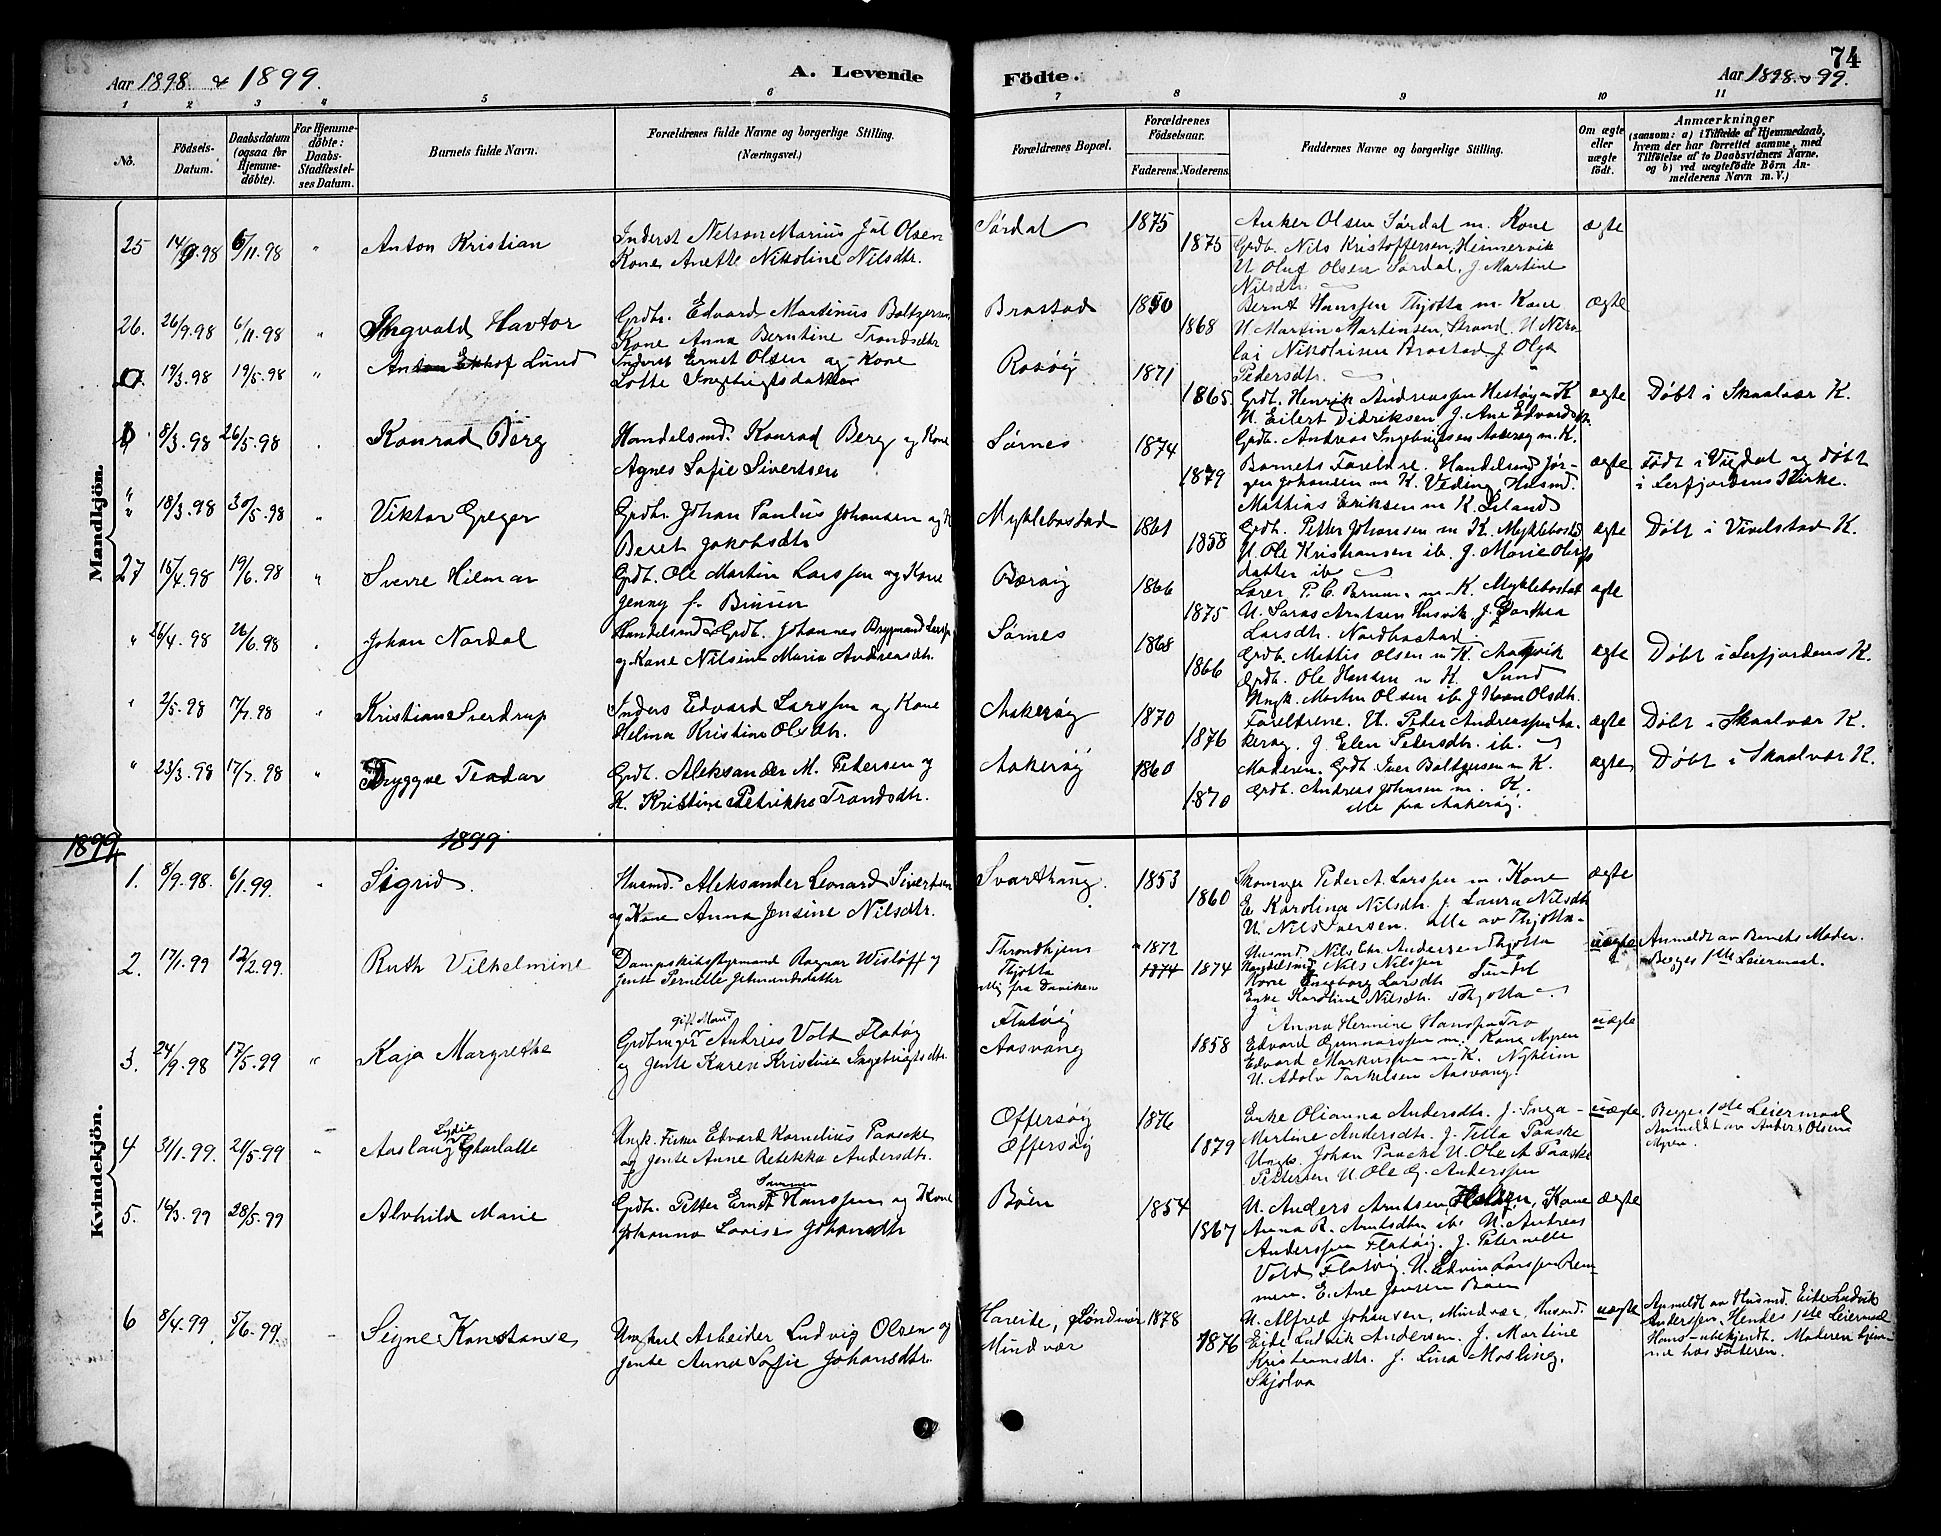 74
Aar 1898 & 1899. A. Levende
Födte. Aar 1898 & 99.
1 2 3 4 5 6 7 8 9 10 11
No.
Födsels-Datum.
Daabsdatum (ogsaa for Hjemme-döbte).
For Hjemme-döbte: Daabs-Stadfæstel-ses Datum.
Barnets fulde Navn.
Forældrenes fulde Navne og borgerlige Stilling.
(Næringsvei.)
Forældrenes Bopæl.
Forældrenes Födselsaar.
Faderens. Moderens.
Faddernes Navne og borgerlige Stilling.
Om ægte eller uægte födt.
Anmærkninger
(saasom: a) i Tilfælde af Hjemmedaab,
hvem der har forrettet samme, med
Tilföielse af to Daabsvidners Navne,
og b) ved uægtefödte Börn An-
melderens Navn m. V.)
Mandkjön.
25 14/9.98 6/11.98 " Anton Kristian
Inderst Nelson Marius Jul Olsen
Kone Anette Nikoline Nilsdtr.
Sørdal 1875 1875
Anker Olsen Sørdal m. Kone
Grdb. Nils Kristoffersen, Hinnervik
U. Oluf Olsen Sørdal, J. Martine
Nilsdtr.
ægte
26. 26/9.98 6/11.98 " Ingvald Havtor
Grdbr. Edvard Martinus Baltzersen
Kone Anna Berntine Trondsdtr
Brastad 1850 1868
Bernt Hanssen Thjøtta m. Kone
U. Martin Martinsen, Strand, U. Niko-
lai Nikolaisen Brastad J. Olga
Pedersdtr.
ægte
0. 19/3.98 19/5.98 " Lund
Inderst Ernst Olsen og Kone
Lotte Ingebrigtsdatter
Rosøig 1871 1865
Grdb. Henrik Andreassen Hestøig m K
U. Eilert Didriksen. J. Ane Edvardsdtr.
Grdb. Andreas Ingebrigtsen Aakerøig m. K.
ægte Døbt i Skaalvær K.
8/3.98 26/5.98 " Konrad Berg
Handelsmd. Konrad Berg og Kone
Agnes Sofie Sivertsen
Sørnes 1874 1879
Barnets Forældre. Handelsmd Jør-
gen Johansen m K. Veding Husmd.
Mathias Eriksen m K. Leland
ægte Født i Vigdal og døbt
i Leirfjordens Kirke.
" 18/3.98 30/5.98 " Viktor Greger
Grdbr. Johan Paulus Johansen og K
Beret Jakobsdtr
Myklebostad 1861 1858
Grdb. Petter Johansen m K. Myklebostad
U. Ole Kristiansen ib. J. Marie Olufs
datter ib
ægte Døbt i Vivelstad K.
27 15/4.98 19/6.98 " Sverre Hilmar
Grdt. Ole Martin Larssen og Kone
Jenny f. Brinsen
Bærøig 1866 1875
Lærer P. C. m. K. Myklebostad
U. Arntsen Husvik J. Dorthea
Larsdtr. Nordbostad.
ægte
" 26/4.98 26/6.98 " Johan Nordal
Handelsmd & Grdb. Johannes Brygmand Larssen
og Kone Nilsine Maria Andreasdtr.
Sørnes 1868 1866
Grdb. Mattis Olsen m K.
Grdb. Ole Hansen m K. Sund
Ungk. Morten Olsen ib. J. Olsdtr.
ægte Døbt i Leirfjordens K.
" 2/5.98 17/7.98 " Kristian Sverdrup
Inders Edvard Larssen og Kone
Helma Kristine Olsdtr.
Aakerøig 1870 1876
Forældrene. U. Peder Andreassen Aa-
kerøig. J. Elen Petersdtr. ib.
ægte Døbt i Skaalvær K.
" 23/3.98 17/7.98 " Tryggve Teodor
Grdt. Aleksander M. Pedersen og
K. Kristine Petrikke Trondsdtr.
Aakerøig 1860 1870
Moderen. Grdt. Iver Baltzersen m K.
Grdt. Andreas Johnsen m. K.
alle fra Aakerøig.
ægte Døbt i Skaalvær K.
1899 1899
Kvindekjön.
1. 8/9.98. 6/1.99. " Sigrid.
Husmd. Aleksander Leonard Sivertsen
og Kone Anna Jensine Nilsdtr.
Svarthaug. 1853 1860
Skomager Peder A. Larssen m. Kone
E. Karolina Nilsdtr. J. Laura Nilsdtr
U. Nils Iversen. alle av Thjøtta
ægte
2. 17/1.99 12/2.99. Ruth Vilhelmine
Dampskibsstyrmand Ragnar Wisløff og
jente Pernelle Jehmundsdatter
Throndhjem
Thjøtta
1872 1874 1874
Husmd. Nils Chr. Andersen Thjøtta
Handelsmd Nils Nilssen
Kone Ingeborg Larsdtr Sundet
Enke Karoline Nilsdtr. Thjøtta
uægte Anmeldt av Barnets Moder.
Begges 1ste Leiermaal.
3. 24/9.98 17/5.99 " Kaja Margrethe
gift Mand
Grdbruger Andreas Vold Flatøig
og jente Karen Kristine Ingebrigtsdtr.
Flatøig
Aasvang 1858
J. Anna Hermine Hanssen Tro
Edvard Gunnarssen m. Kone Myren
Edvard Markussen m. K. Nyheim
U. Adolv Torkelsen Aasvang.
uægte
4 31/1.99. 21/5.99 " Aaslaug Lydie Charlotte
Ungk. Fisker Edvard Kornelius Paaske
og jente Anne Rebekka Andersdtr.
Offersøig
Offersøig
1876 1879
Enke Olianna Andersdtr. J. Inga
Martine Andersdtr. J. Tilla Paaske
Ungk. Johan Paaske U. Ole A Paaske
Pettersen U. Ole G. Anderssen
uægte. Begges 1ste Leiermaal
Anmeldt av Anders Olsen
Myren.
5. 16/3.99 28/5.99 Alvhild Marie
Grdbr. Petter Ernst Hanssen og Kone
Johanna Lovise Johansdtr
Bøen 1854 1867
U. Anders Arntsen, Kone
Anna R. Arntsdtr ib. U. Andreas
Anderssen Flatøig. J. Peternelle
Vold Flatøig. U. Edvin Larssen Rem-
men. E. Ane Jonsen Bøen
ægte
6 8/4.99 5/6.99. Signe Konstanse
Ungkarl Arbeider Ludvig Olsen og
jente Anna Sofie Johansdtr.
Mindvær 1878 1876
U. Alfred Johansen, Mindvær, Husmd.
Eide Ludvik Andersen. J. Martine
Kristiansdtr. J. Lina Mosling,
Skjelva
uægte Anmeldt av Husmd. Eide Ludvik
Anderssen. Hendes 1ste Leiermaal
Hans ubekjendt. Moderen hjem-
me hos Faderen.